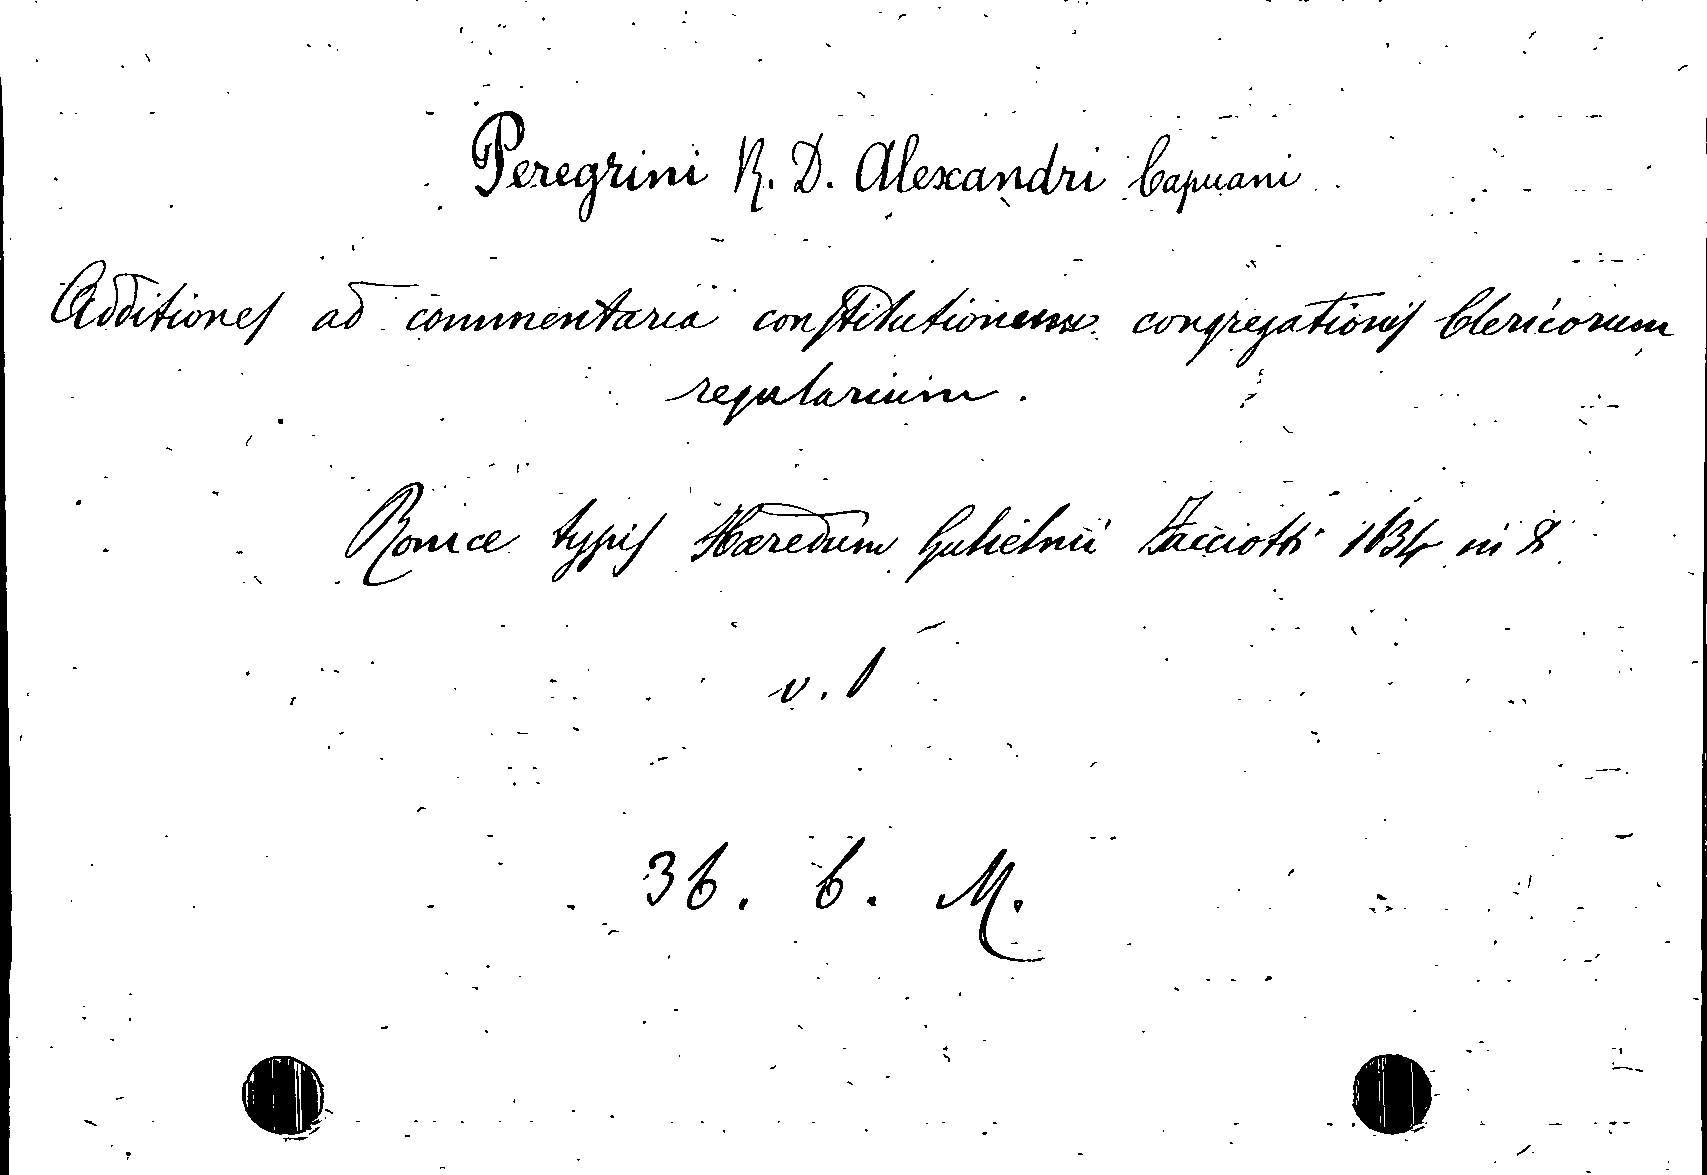 Peregrini R. D. Alexandri Capuani
Additiones ad commentaria constitutionum congregationis Clericorum
regularium.
Romae typis Haeredum Gulielmi Facciotti 1634 in 8
v. 1
36. 6. M.